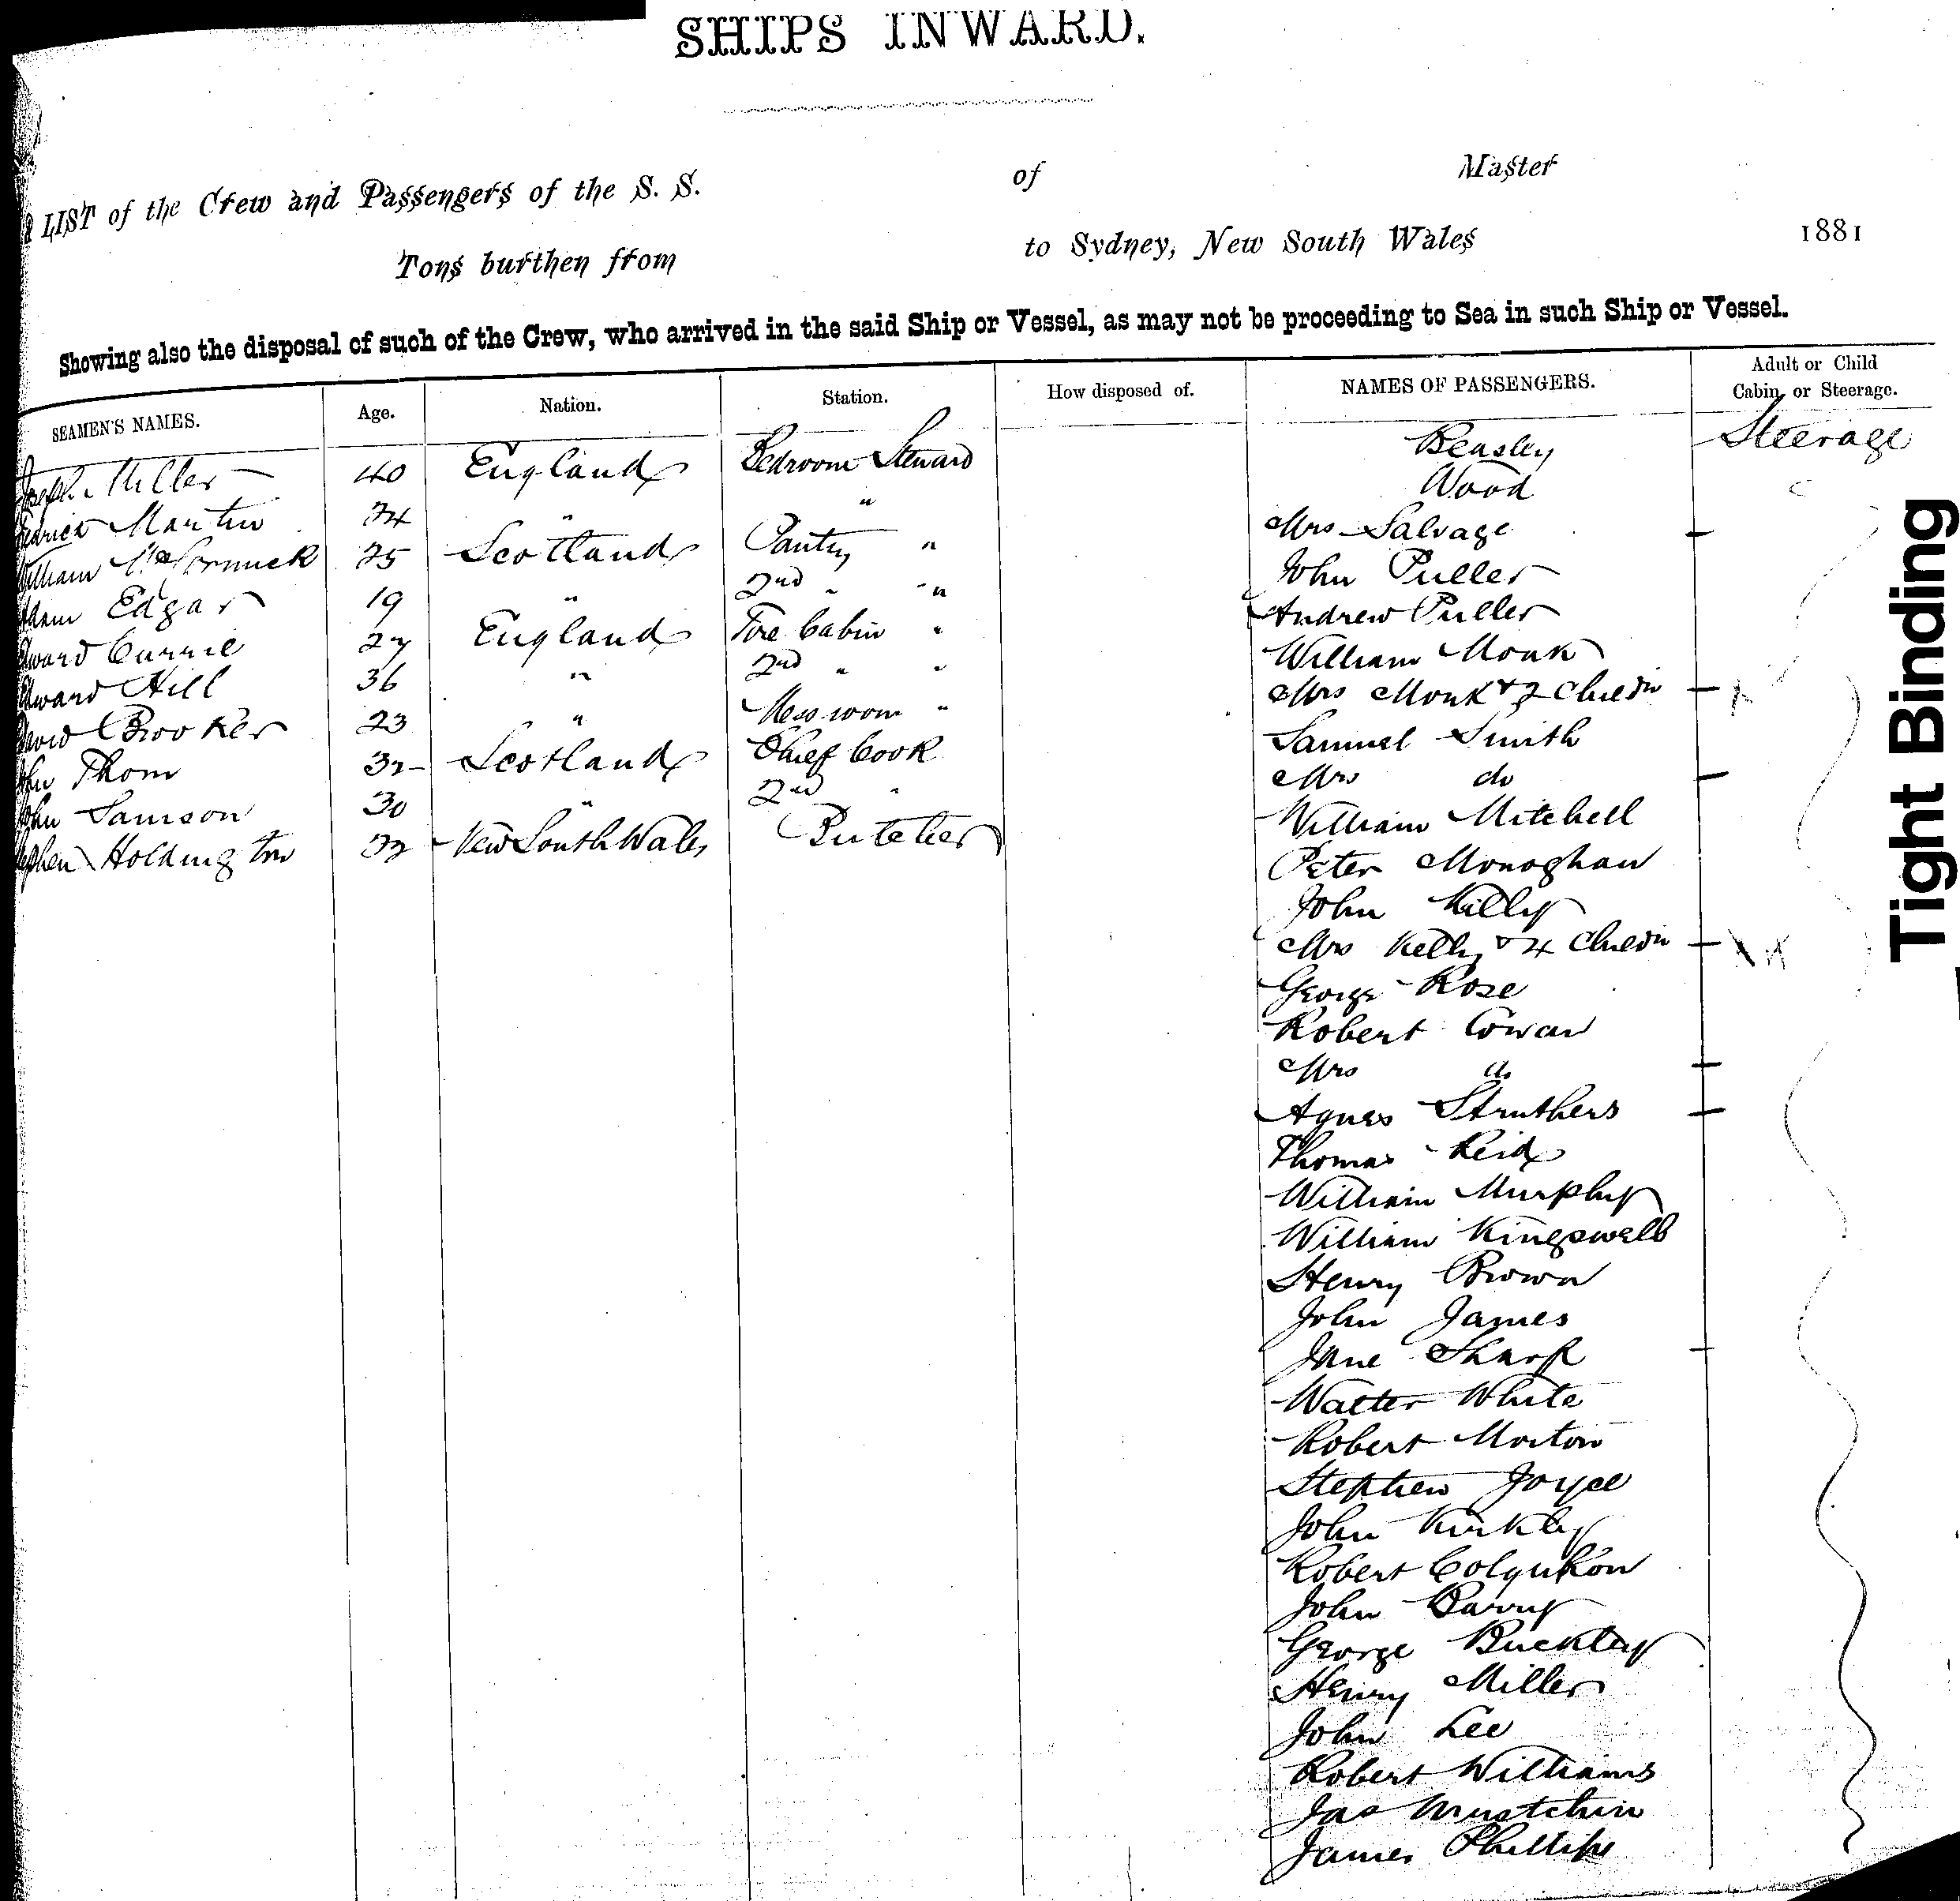 SHIPS INWARD.
LIST of the Crew and Passengers of the S. S. of Master
Tons burthen from to Sydney, New South Wales 1881
Showing also the disposal of such of the Crew, who arrived in the said Ship or Vessel, as may not be proceeding to Sea in such Ship or Vessel.
SEAMEN'S NAMES. Age. Nation. Station. How disposed of. NAMES OF PASSENGERS. Adult or Child Cabin, or Steerage.
Joseph Miller 40 England Bedroom Steward
edrick Martin 34 " "
William McCormick 25 Scotland Pantry "
Adam Edgar 19 " 2nd " "
dward Currie 27 England Fore Cabin "
dward Hill 36 " 2nd " "
David Brooker 23 " Messroom "
John Thom 32 Scotland Chief Cook
John Samson 30 " 2nd "
ephen Holdington 33 New South Wales Butcher
Beasley Steerage
Wood
Mrs Salvage
John Puller
Andrew Puller
William Monk
Mrs Monk & 2 Childn
Samuel Smith
Mrs do
William Mitchell
Peter Monoghan
John Killy
Mrs Kelly & 4 Childn
George Rose
Robert Cowan
Mrs
Agnes Struthers
Thomas Reid
William Murphy
William Kingswell
Henry Brown
John James
Jane Sharp
Walter White
Robert Morton
Stephen Joyce
John Kirkley
Robert Colquhon
John Barry
George Buckley
Henry Miller
John Lee
Robert Williams
Jas Mustchin
James Phillips
Tight Binding